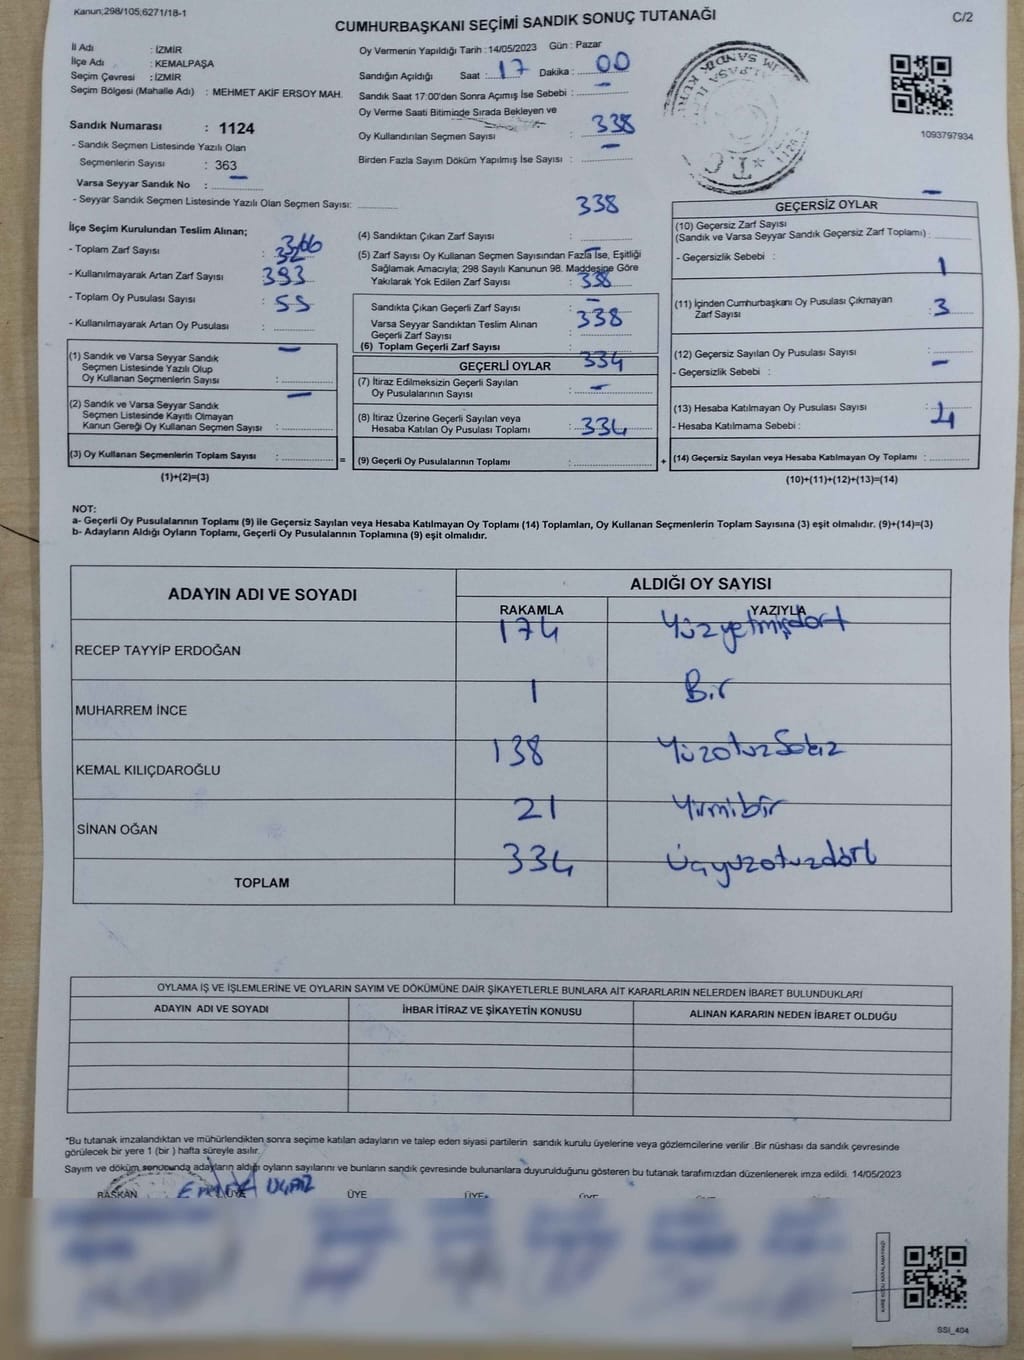 Kanun;298/105,6271/18-1
CUMHURBAŞKANI SEÇİMİ SANDIK SONUÇ TUTANAĞI
C/2
İl Adı : İZMİR
İlçe Adı : KEMALPAŞA
Seçim Çevresi : İZMİR
Seçim Bölgesi (Mahalle Adı) : MEHMET AKİF ERSOY MAH.
Sandık Numarası : 1124
- Sandık Seçmen Listesinde Yazılı Olan
Seçmenlerin Sayısı : 363
Varsa Seyyar Sandık No : –
- Seyyar Sandık Seçmen Listesinde Yazılı Olan Seçmen Sayısı:
Oy Vermenin Yapıldığı Tarih : 14/05/2023 Gün : Pazar
Sandığın Açıldığı Saat : 17 Dakika : 00
Sandık Saat 17:00'den Sonra Açımış İse Sebebi : –
Oy Verme Saati Bitiminde Sırada Bekleyen ve
Oy Kullandırılan Seçmen Sayısı : 338
Birden Fazla Sayım Döküm Yapılmış İse Sayısı : –
1093797934
İlçe Seçim Kurulundan Teslim Alınan;
- Toplam Zarf Sayısı
- Kullanılmayarak Artan Zarf Sayısı : 393
- Toplam Oy Pusulası Sayısı : 55
- Kullanılmayarak Artan Oy Pusulası :
(1) Sandık ve Varsa Seyyar Sandık
Seçmen Listesinde Yazılı Olup
Oy Kullanan Seçmenlerin Sayısı : –
(2) Sandık ve Varsa Seyyar Sandık
Seçmen Listesinde Kayıtlı Olmayan
Kanun Gereği Oy Kullanan Seçmen Sayısı : –
(3) Oy Kullanan Seçmenlerin Toplam Sayısı : =
(1)+(2)=(3)
338
(4) Sandıktan Çıkan Zarf Sayısı :
(5) Zarf Sayısı Oy Kullanan Seçmen Sayısından Fazla İse, Eşitliği
Sağlamak Amacıyla; 298 Sayılı Kanunun 98. Maddesine Göre
Yakılarak Yok Edilen Zarf Sayısı : 338
Sandıkta Çıkan Geçerli Zarf Sayısı : –
Varsa Seyyar Sandıktan Teslim Alınan
Geçerli Zarf Sayısı : 338
(6) Toplam Geçerli Zarf Sayısı :
GEÇERLİ OYLAR 334
(7) İtiraz Edilmeksizin Geçerli Sayılan
Oy Pusulalarının Sayısı : –
(8) İtiraz Üzerine Geçerli Sayılan veya
Hesaba Katılan Oy Pusulası Toplamı : 334
(9) Geçerli Oy Pusulalarının Toplamı : +
–
GEÇERSİZ OYLAR
(10) Geçersiz Zarf Sayısı
(Sandık ve Varsa Seyyar Sandık Geçersiz Zarf Toplamı) :
- Geçersizlik Sebebi : 1
(11) İçinden Cumhurbaşkanı Oy Pusulası Çıkmayan
Zarf Sayısı : 3
(12) Geçersiz Sayılan Oy Pusulası Sayısı :
- Geçersizlik Sebebi : –
(13) Hesaba Katılmayan Oy Pusulası Sayısı : 4
- Hesaba Katılmama Sebebi :
(14) Geçersiz Sayılan veya Hesaba Katılmayan Oy Toplamı :
(10)+(11)+(12)+(13)=(14)
NOT:
a- Geçerli Oy Pusulalarının Toplamı (9) ile Geçersiz Sayılan veya Hesaba Katılmayan Oy Toplamı (14) Toplamları, Oy Kullanan Seçmenlerin Toplam Sayısına (3) eşit olmalıdır. (9)+(14)=(3)
b- Adayların Aldığı Oyların Toplamı, Geçerli Oy Pusulalarının Toplamına (9) eşit olmalıdır.
ADAYIN ADI VE SOYADI ALDIĞI OY SAYISI
RAKAMLA YAZIYLA
RECEP TAYYİP ERDOĞAN 174 Yüzyetmişdört
MUHARREM İNCE 1 Bir
KEMAL KILIÇDAROĞLU 138 YüzotuzSekiz
SİNAN OĞAN 21 Yirmibir
TOPLAM 334 Üçyuzotuzdört
OYLAMA İŞ VE İŞLEMLERİNE VE OYLARIN SAYIM VE DÖKÜMÜNE DAİR ŞİKAYETLERLE BUNLARA AİT KARARLARIN NELERDEN İBARET BULUNDUKLARI
ADAYIN ADI VE SOYADI İHBAR İTİRAZ VE ŞİKAYETİN KONUSU ALINAN KARARIN NEDEN İBARET OLDUĞU
*Bu tutanak imzalandıktan ve mühürlendikten sonra seçime katılan adayların ve talep eden siyasi partilerin sandık kurulu üyelerine veya gözlemcilerine verilir. Bir nüshası da sandık çevresinde
görülecek bir yere 1 (bir ) hafta süreyle asılır.
Sayım ve döküm sonucunda adayların aldığı oyların sayılarını ve bunların sandık çevresinde bulunanlara duyurulduğunu gösteren bu tutanak tarafımızdan düzenlenerek imza edildi. 14/05/2023
BAŞKAN ÜYE ÜYE ÜYE ÜYE
SSI_404